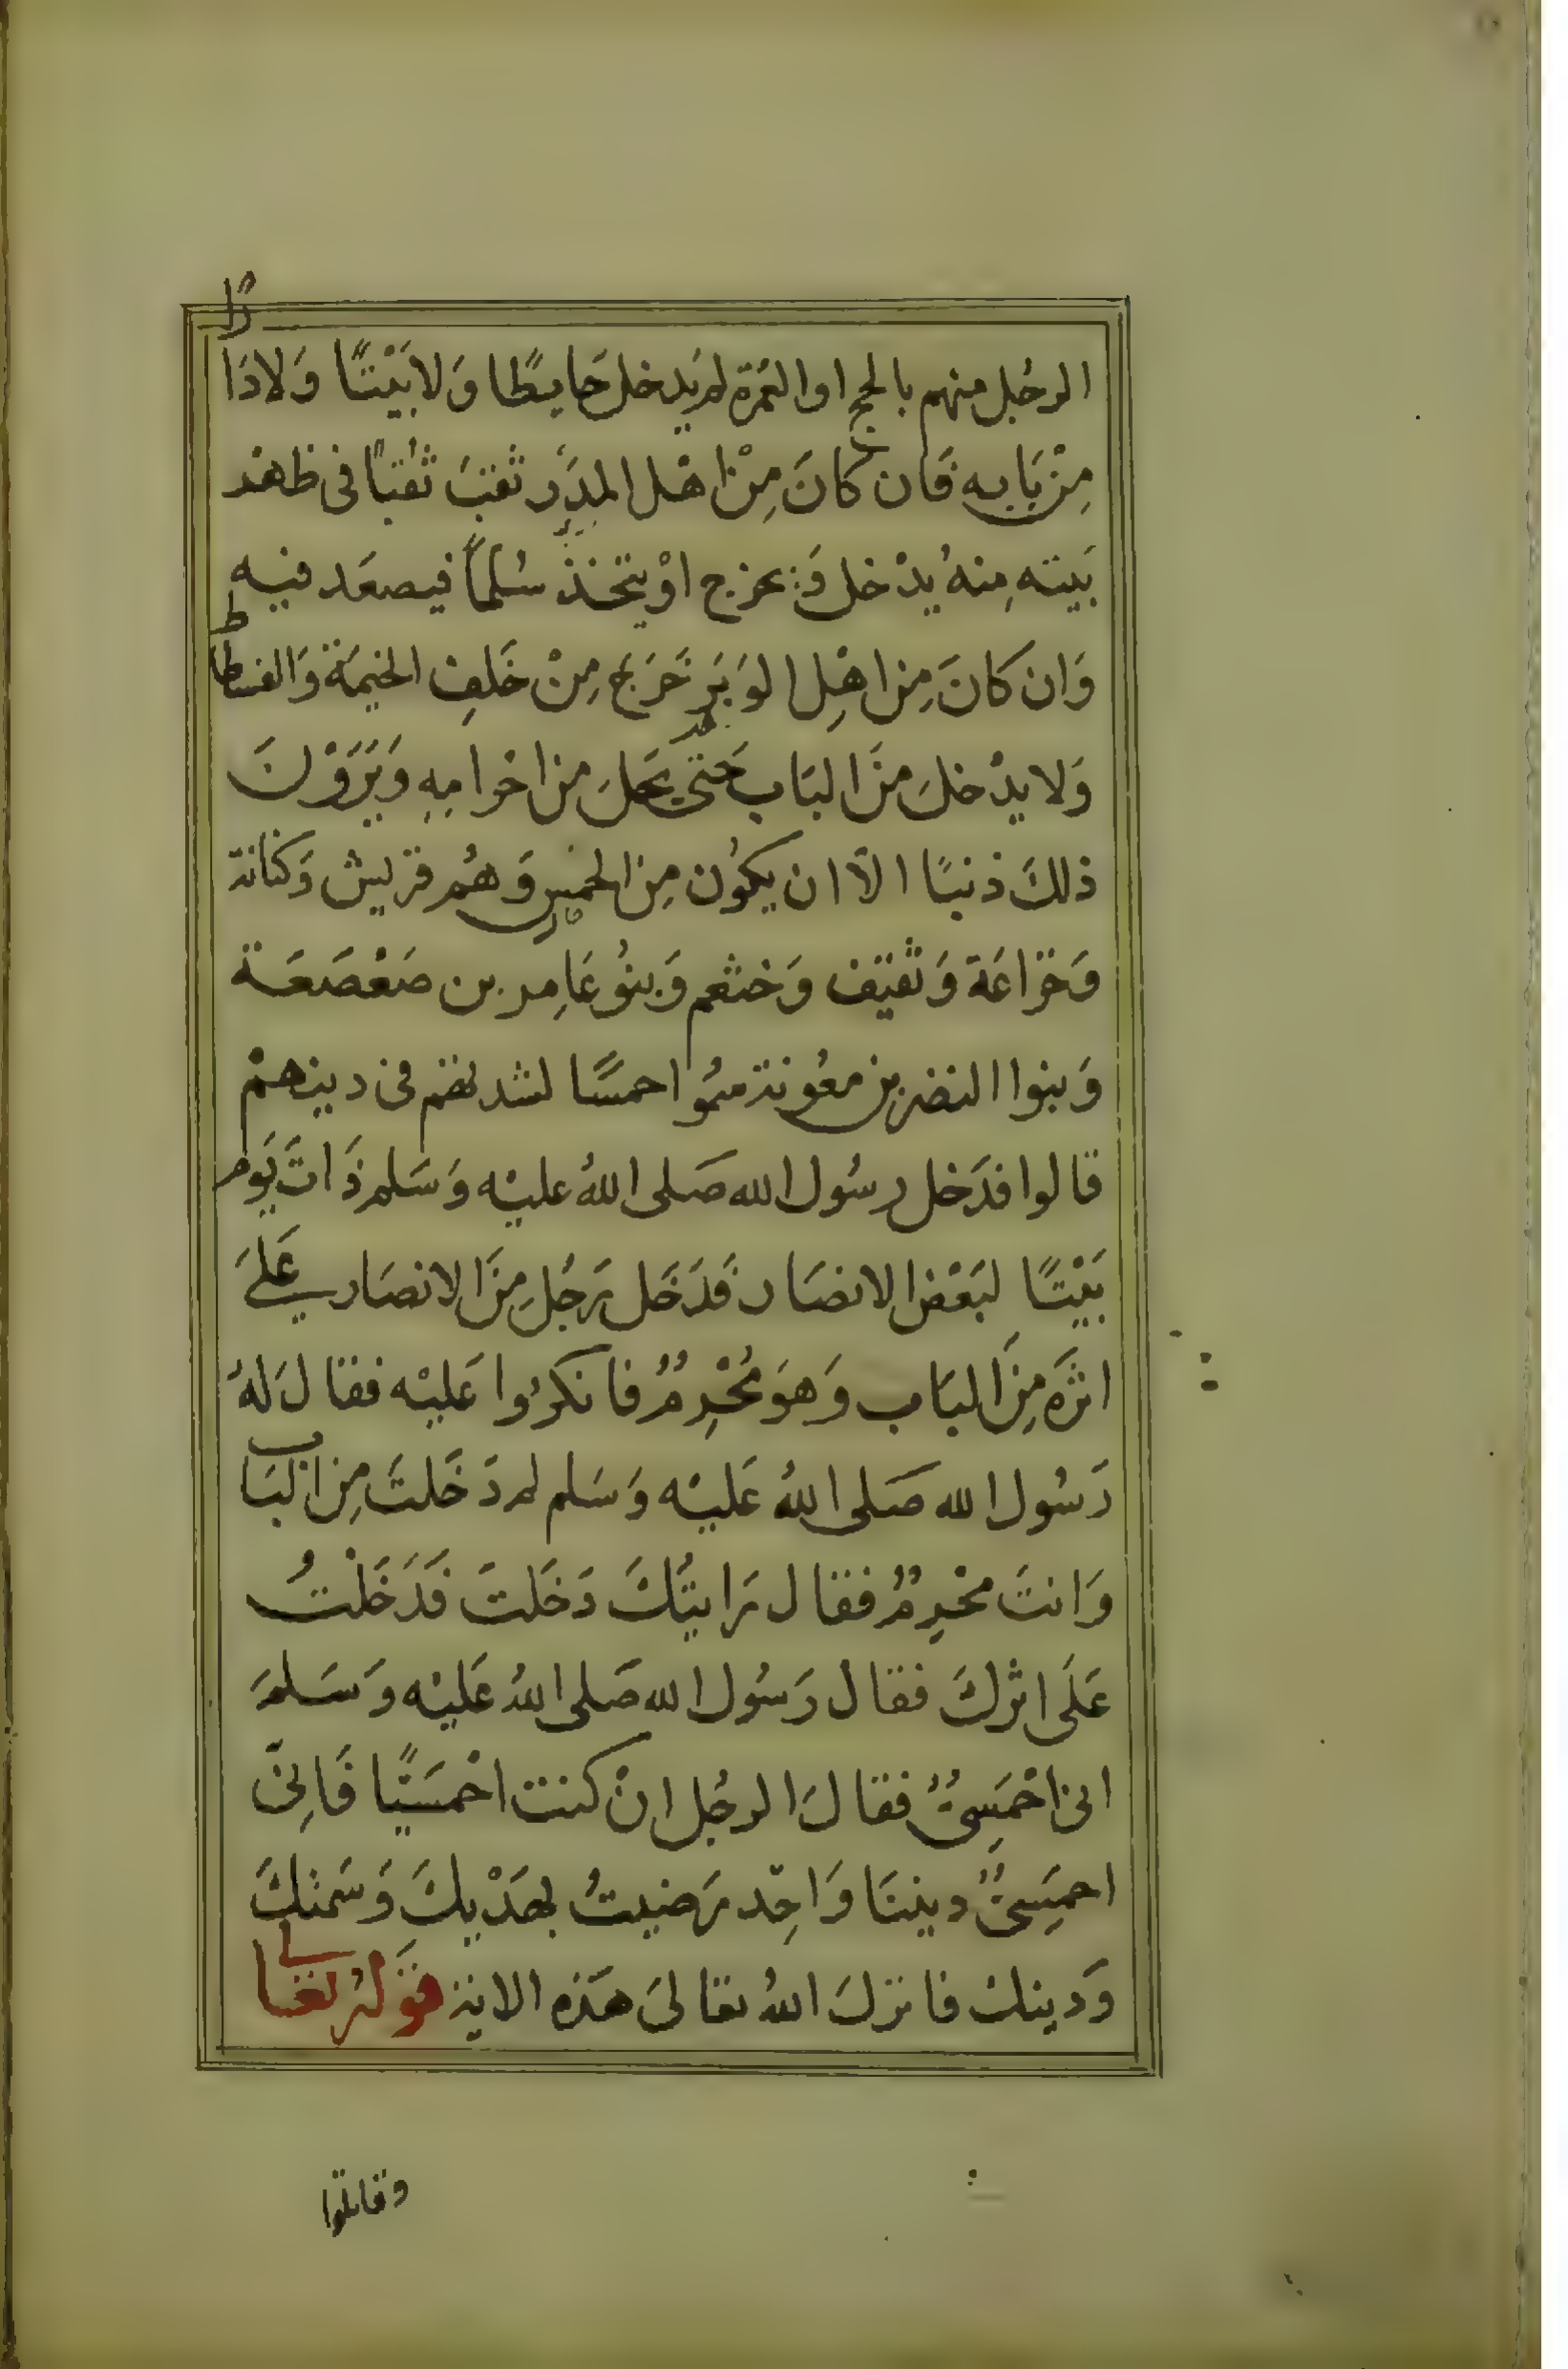 الرجُل منهم بالحج او العُمرة لم يَدخل حَايطًا وَلا بَيْتًا وَلا دَارًا
مِنْ بَابِه فَان كانَ مِنْ اهْل المدَر ثقبَ ثقبًا فى ظهر
بَيته مِنهُ يدْخل وَيخرج اوْ يتخذ سُلماً فيصعَد فيه
وَان كانَ مِن اهْلِ الوَبَرِ خَرَجَ مِنْ خَلفِ الخيمَة وَالفسطاط
وَلا يدْخلَ منَ البَاب حَتى يَحلَ من احرامِهِ وَيَرَوْنَ
ذلكَ ذنبًا الاّ ان يكوُن مِن الحمسِ وَهُم قريش وَكنانة
وَخزاعَة وَثقيف وَخثعم وَبنوُ عَامِر بن صَعْصَعَة
وَبنوا النضر بن معٰوية سمُوا حمسًا لشدتهم فى دينهمْ
قالوا فدَخل رسُول الله صَلى اللهُ عليْه وَسَلم ذَاتَ يَوم
بَيْتًا لبَعْض الانصَار فَدَخَل رَجُل مِنَ الانصَار عَلىَ
اثرَه مِنَ البَاب وَهوَ مُحْرِمٌ فانكرُوا عَليْه فقال لَهُ
رَسُول الله صَلى اللهُ عَليْه وَسَلم لم دَخَلتَ مِن البَاب
وَانتَ محْرِمٌ فقال رَايتُكَ دَخَلتَ فَدَخَلْتُ
عَلَى اثركَ فقال رَسُول الله صَلى اللهُ عَليْه وَسَلمَ
انى احْمَسِىٌّ فقالَ الرجُل انْ كنت احْمَسيًّا فَاِنىّ
احمَسِىٌّ ديننَا وَاحِد رَضيتُ بهَدْيكَ وَسَمتكَ
وَدينكَ فانزلَ اللهُ تعَالىَ هَذه الاية قوَله تعَالى
وقاتلوا